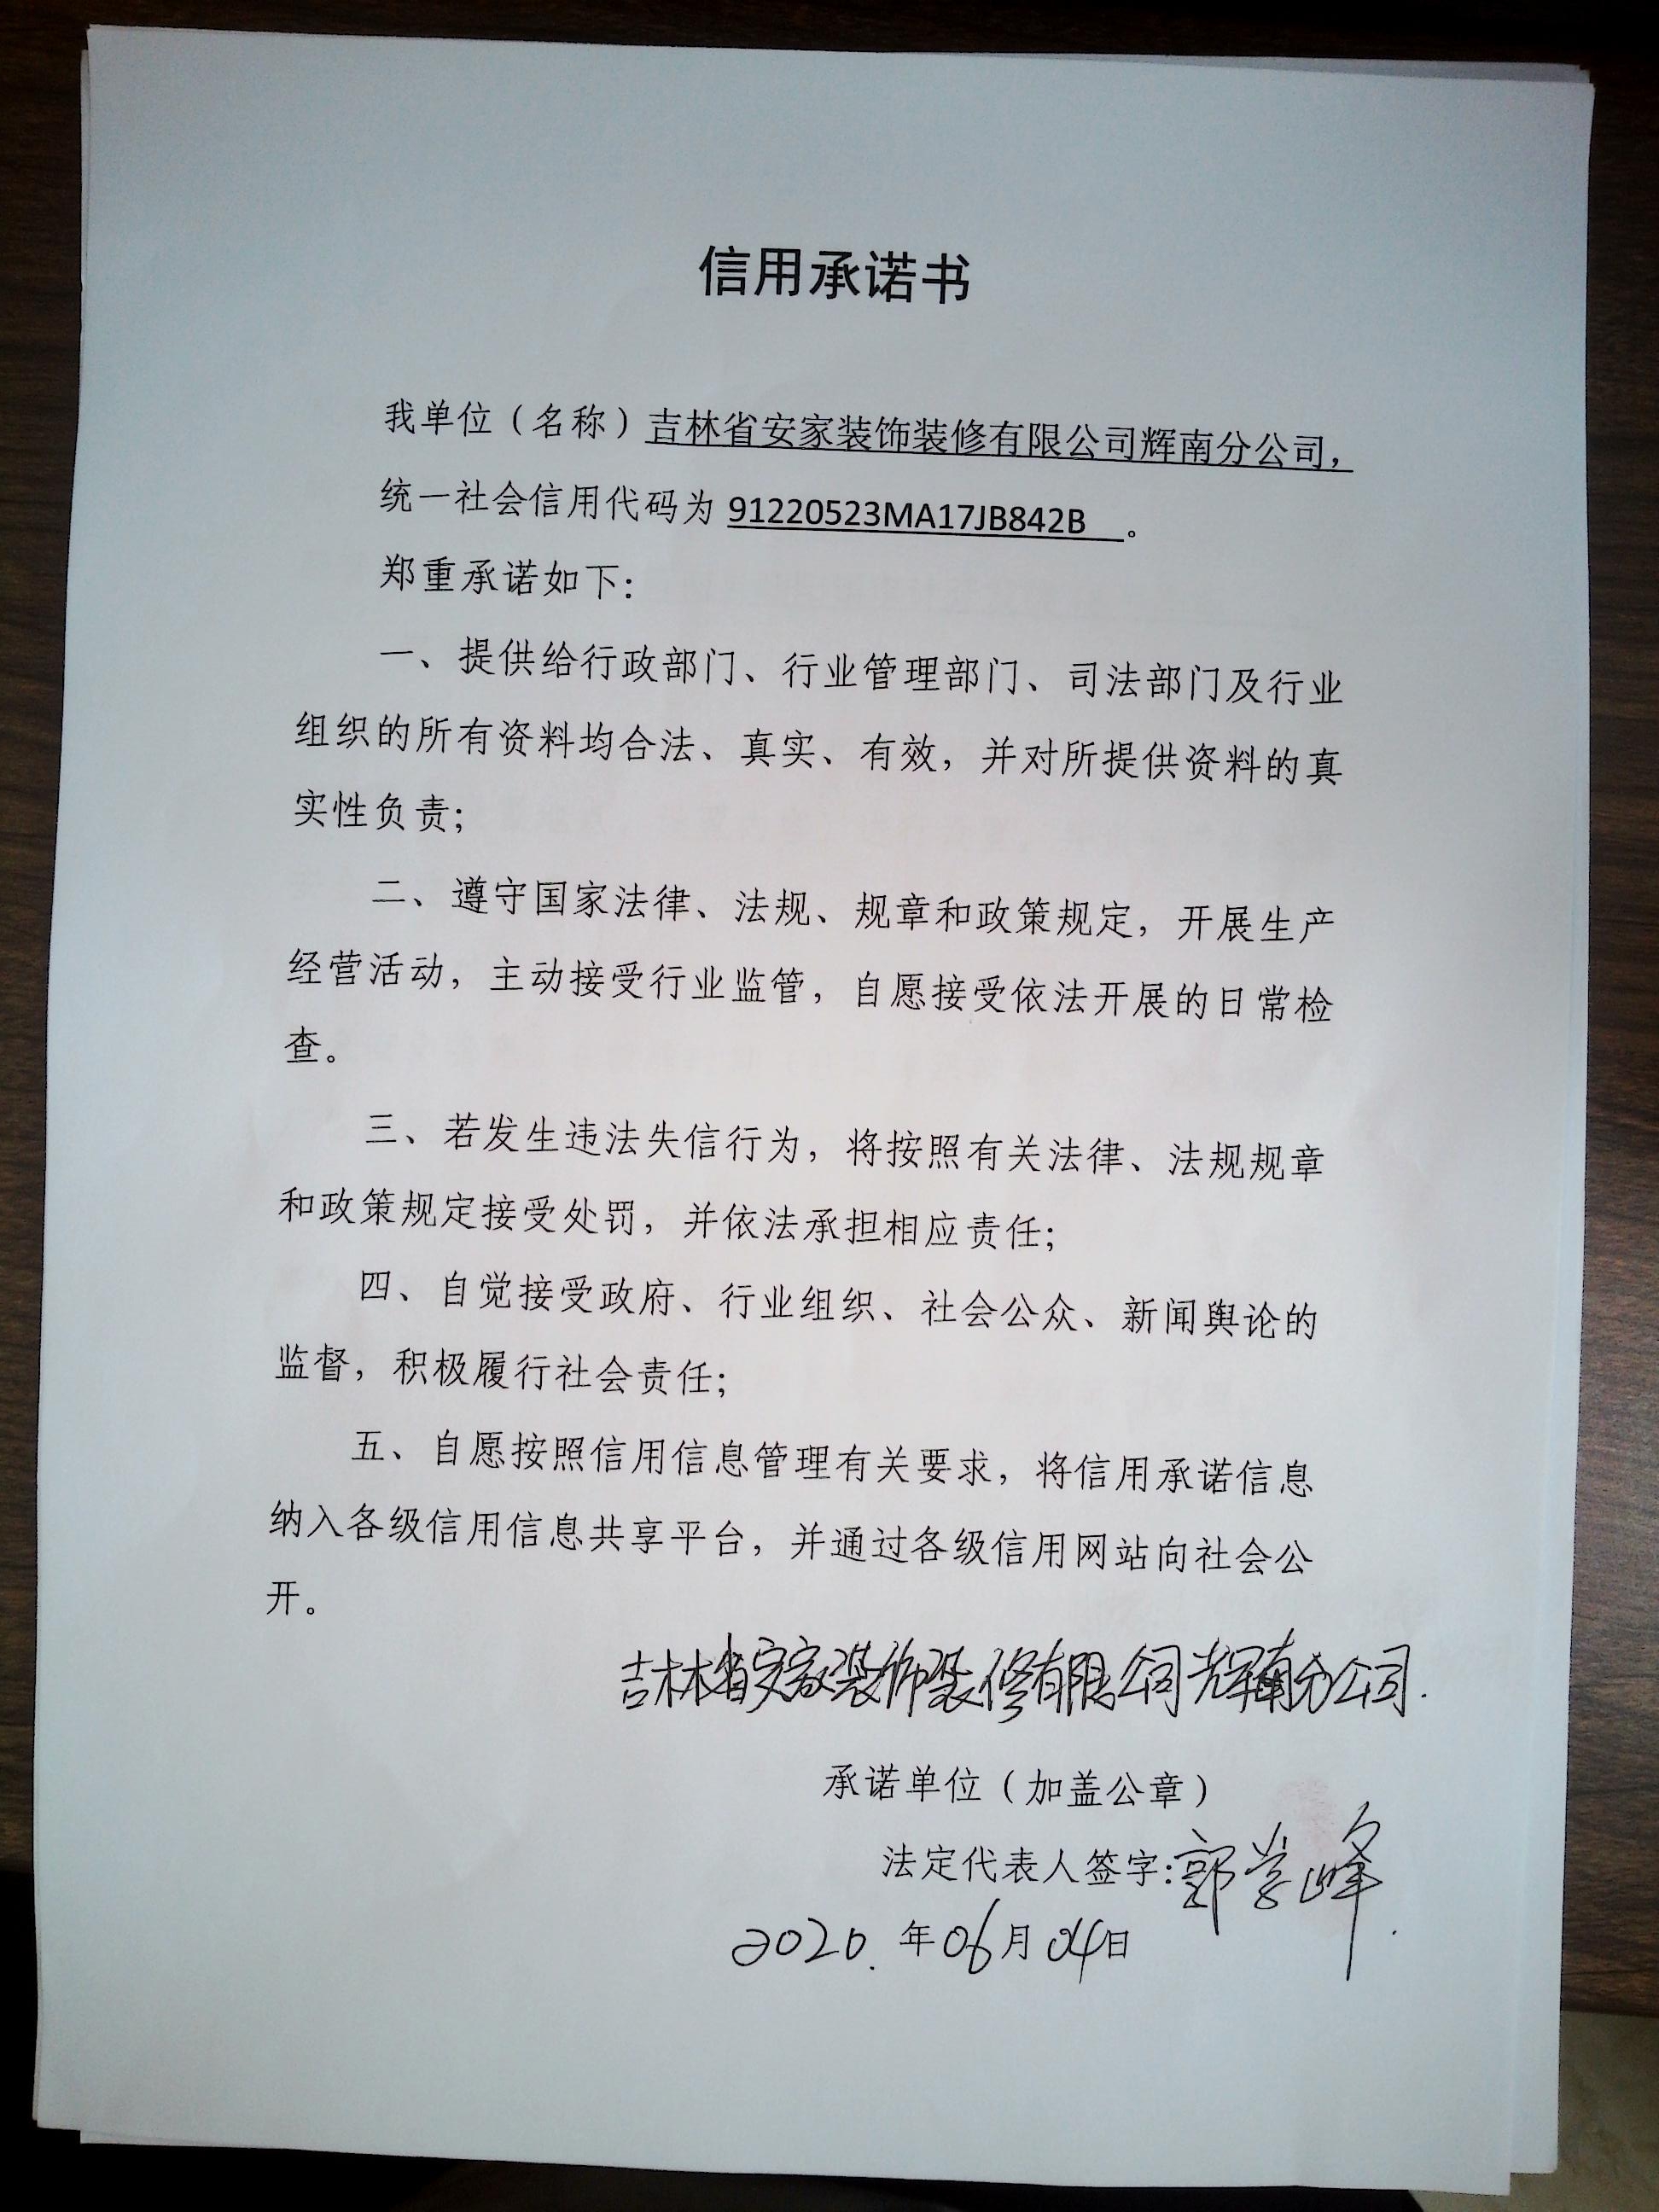 信用承诺书
我单位（名称）吉林省安家装饰装修有限公司辉南分公司，
统一社会信用代码为 91220523MA17JB842B 。
郑重承诺如下：
一、提供给行政部门、行业管理部门、司法部门及行业
组织的所有资料均合法、真实、有效，并对所提供资料的真
实性负责；
二、遵守国家法律、法规、规章和政策规定，开展生产
经营活动，主动接受行业监管，自愿接受依法开展的日常检
查。
三、若发生违法失信行为，将按照有关法律、法规规章
和政策规定接受处罚，并依法承担相应责任；
四、自觉接受政府、行业组织、社会公众、新闻舆论的
监督，积极履行社会责任；
五、自愿按照信用信息管理有关要求，将信用承诺信息
纳入各级信用信息共享平台，并通过各级信用网站向社会公
开。
吉林省安家装饰装修有限公司辉南分公司.
承诺单位（加盖公章）
法定代表人签字：郭学峰.
2020. 年 06 月 04 日